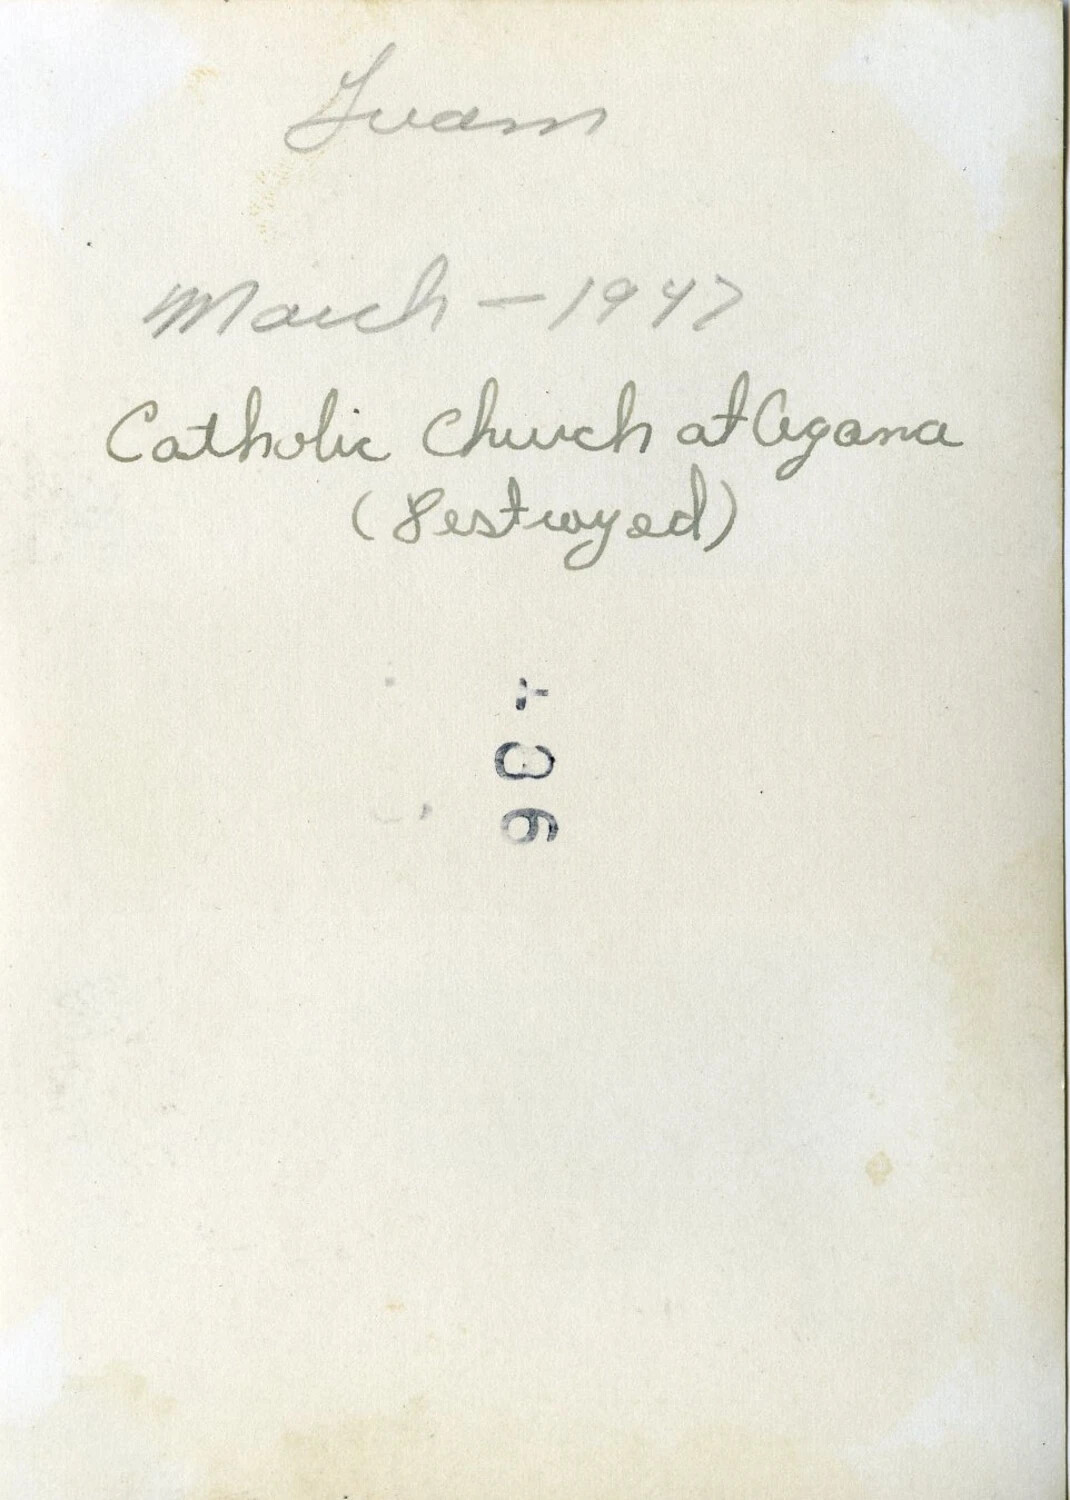 Guam
March - 1947
Catholic Church at Agana
(Destroyed)